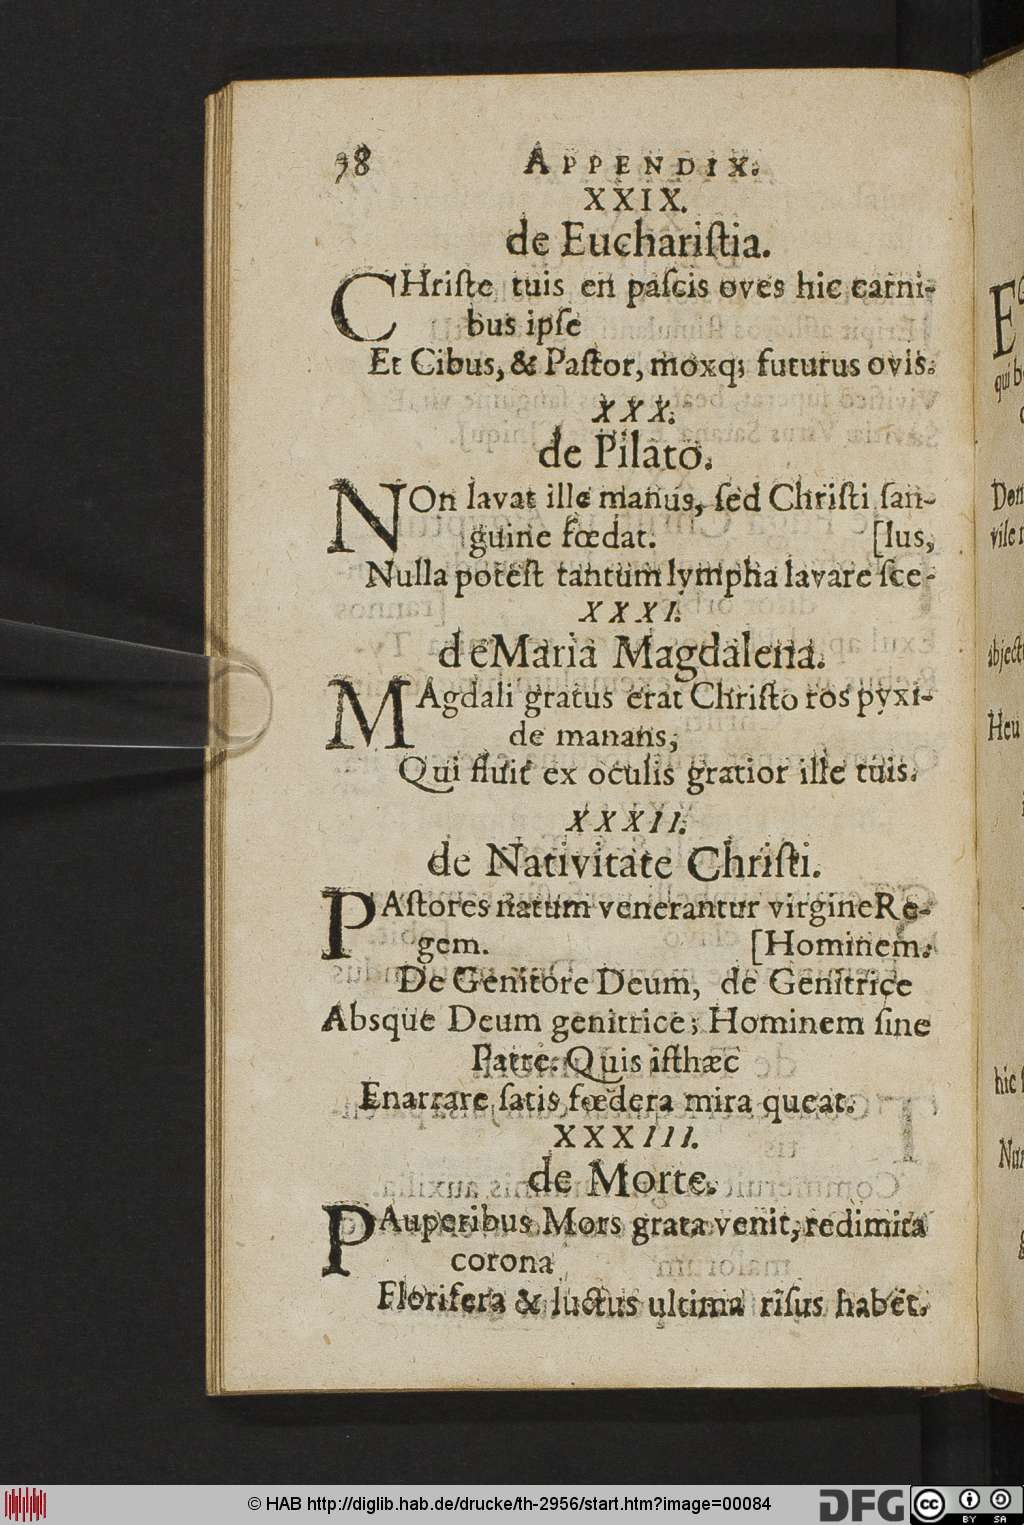 38 APPENDIX.
XXIX.
de Euchariſtia.
CHriſte tuis en paſcis oves hic carni-
bus ipſe
Et Cibus, & Paſtor, moxq; futurus ovis.
XXX.
de Pilato.
NOn lavat ille manus, ſed Chriſti ſan-
guine fœdat. [lus,
Nulla poteſt tantum lympha lavare ſce-
XXXI.
de Maria Magdalena.
MAgdali gratus erat Chriſto ros pyxi-
de manans,
Qui fluit ex oculis gratior ille tuis.
XXXII.
de Nativitate Chriſti.
PAſtores natum venerantur virgine Re-
gem. [Hominem.
De Genitore Deum, de Genitrice
Absque Deum genitrice; Hominem ſine
Patre. Quis iſthæc
Enarrare ſatis fœdera mira queat.
XXXIII.
de Morte.
PAuperibus Mors grata venit, redimita
corona
Florifera & luctus ultima riſus habet.
E
qui b
Den
vile
abject
Heu
hic
Nun
© HAB http://diglib.hab.de/drucke/th-2956/start.htm?image=00084
DFG
cc BY SA